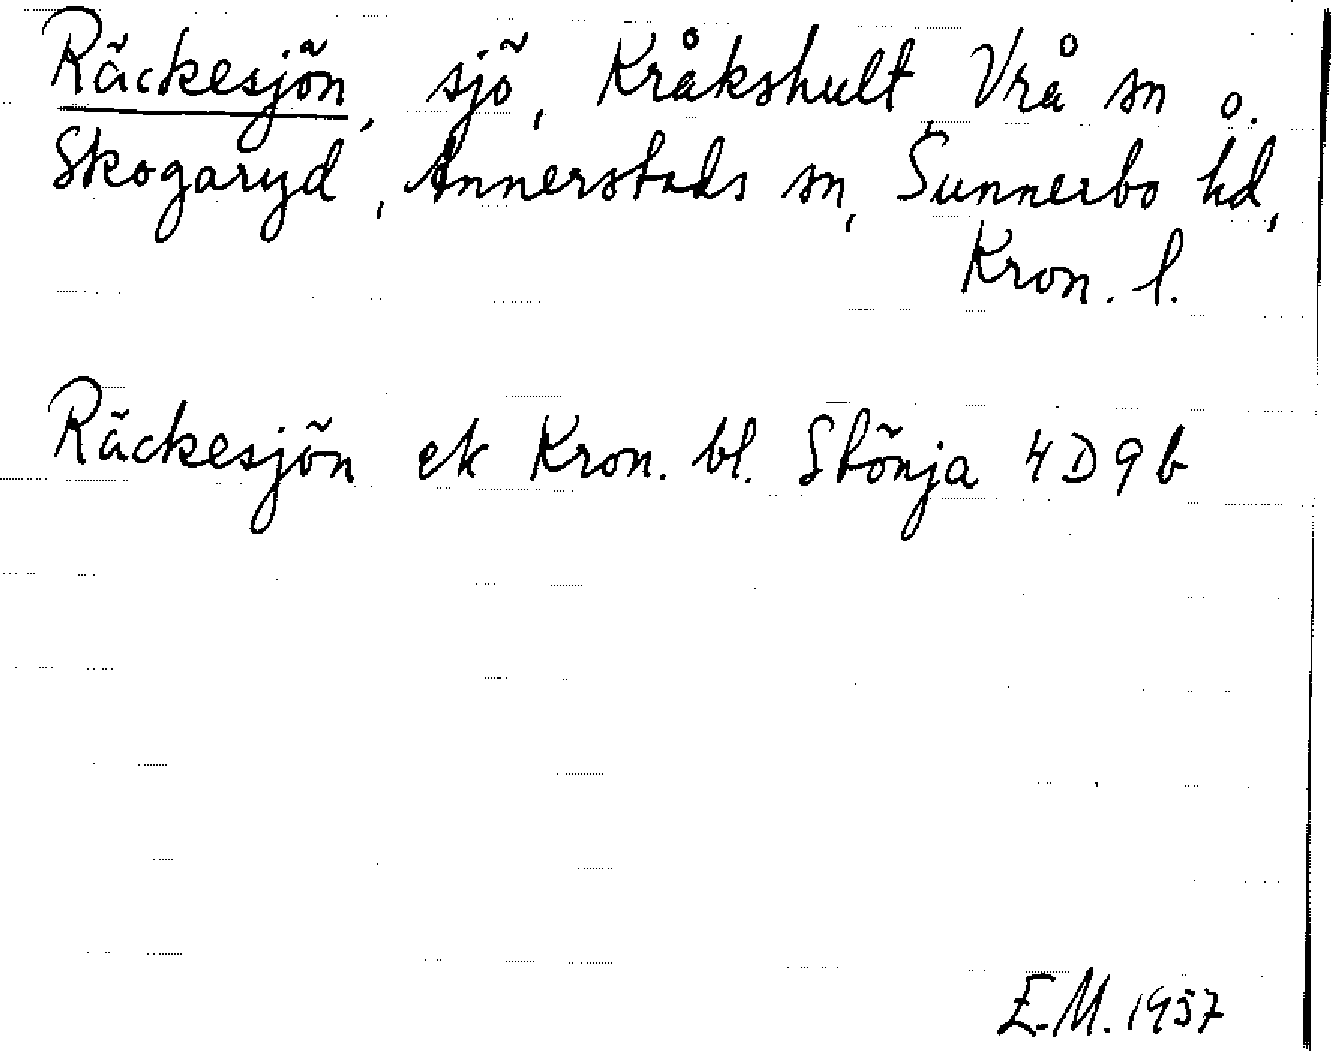 Räckesjön, sjö, Kråkshult, Vrå sn o.
Skogaryd, Annerstads sn, Sunnerbo hd,
Kron. l.
Räckesjön ek Kron. bl. Stönja 4D9b
E.M. 1957